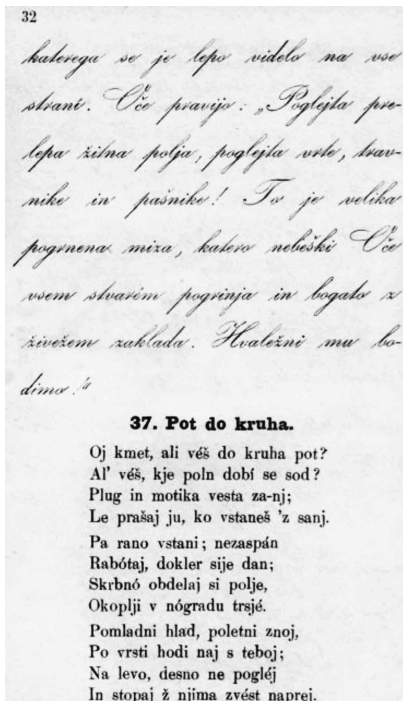 32
katerega se je lepo videlo na vse
strani. Oče pravijo: „Poglejta pre-
lepa žitna polja, poglejta vrte, trav-
nike in pašnike! To je velika
pogrnena miza, katero nebeški Oče
vsem stvarém pogrinja in bogato z
živežem zaklada. Hvaležni mu bo-
dimo!“
37. Pot do kruha.
Oj kmet, ali véš do kruha pot?
Al’ véš, kje poln dobí se sod?
Plug in motika vesta za-nj;
Le prašaj ju, ko vstaneš ’z sanj.
Pa rano vstani; nezaspán
Rabótaj, dokler sije dan;
Skrbnó obdelaj si polje,
Okoplji v nógradu trsjé.
Pomladni hlad, poletni znoj,
Po vrsti hodi naj s teboj;
Na levo, desno ne pogléj
In stopaj ž njima zvést naprej.